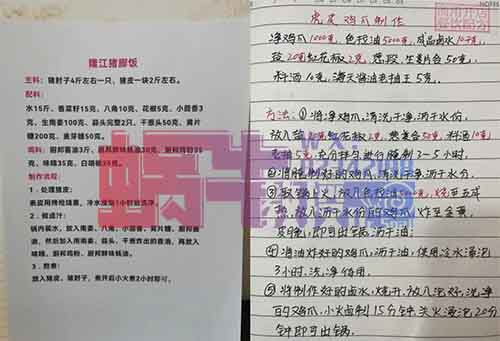 隆江猪脚饭
主料：猪肘子4斤左右一只、猪皮一块2斤左右。
配料：
水15斤、香菜籽15克、八角10克、花椒5克、小茴香3
克、生南姜100克、蒜头完整2只、干葱头50克、黄片
糖200克、麦芽糖50克。
制作流程：
1、处理猪皮：
2、做卤汁：
锅内装水，放入南姜、八角、小茴香、黄片糖、
3、熬煮：
放入猪皮、猪肘子，煮开后小火煮2小时即可。
虎皮鸡爪制作
净鸡爪1000克，色拉油5000克，成品卤水10千克，
盐20克，红花椒2克，葱段、生姜片各50克，
料酒10克，海天酱油老抽王5克。
方法：①将净鸡爪，清洗干净，沥干水份，
放入盐20克，红花椒2克，葱姜各50克，料酒10克，
老抽5克，充分拌匀进行腌制3-5小时，
②将腌制好的鸡爪，清洗干净，沥干水分，
③取锅上火，放入色拉油5000克，烧至五成
热，放入沥干水份的鸡爪，炸至金黄，
即可出锅，沥干油；
④将油炸好的鸡爪，沥干油，使用冷水浸泡
3小时，洗净待用。
⑤将制作好的卤水，烧开，放入泡好，洗净
的鸡爪，小火卤制15分钟，关火浸泡20分
钟即可出锅。